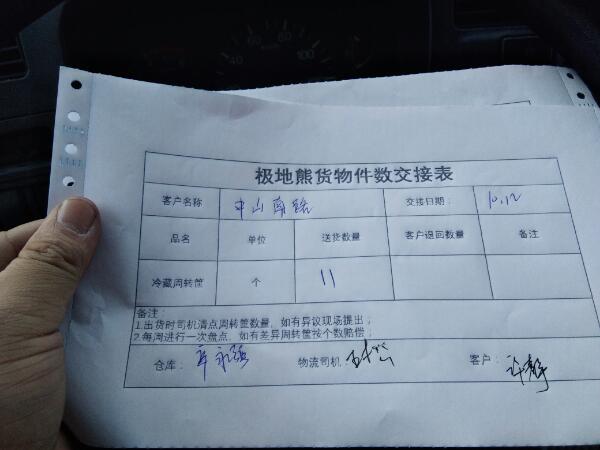 40 60 80 100
极地熊货物件数交接表
客户名称 中山南路 交接日期： 10.12
品名 单位 送货数量 客户退回数量 备注
冷藏周转筐 个 11
备注：
1.出货时司机清点周转筐数量，如有异议现场提出；
2.每周进行一次盘点，如有差异周转筐按个数赔偿；
仓库： 永强 物流司机： 客户： 许静